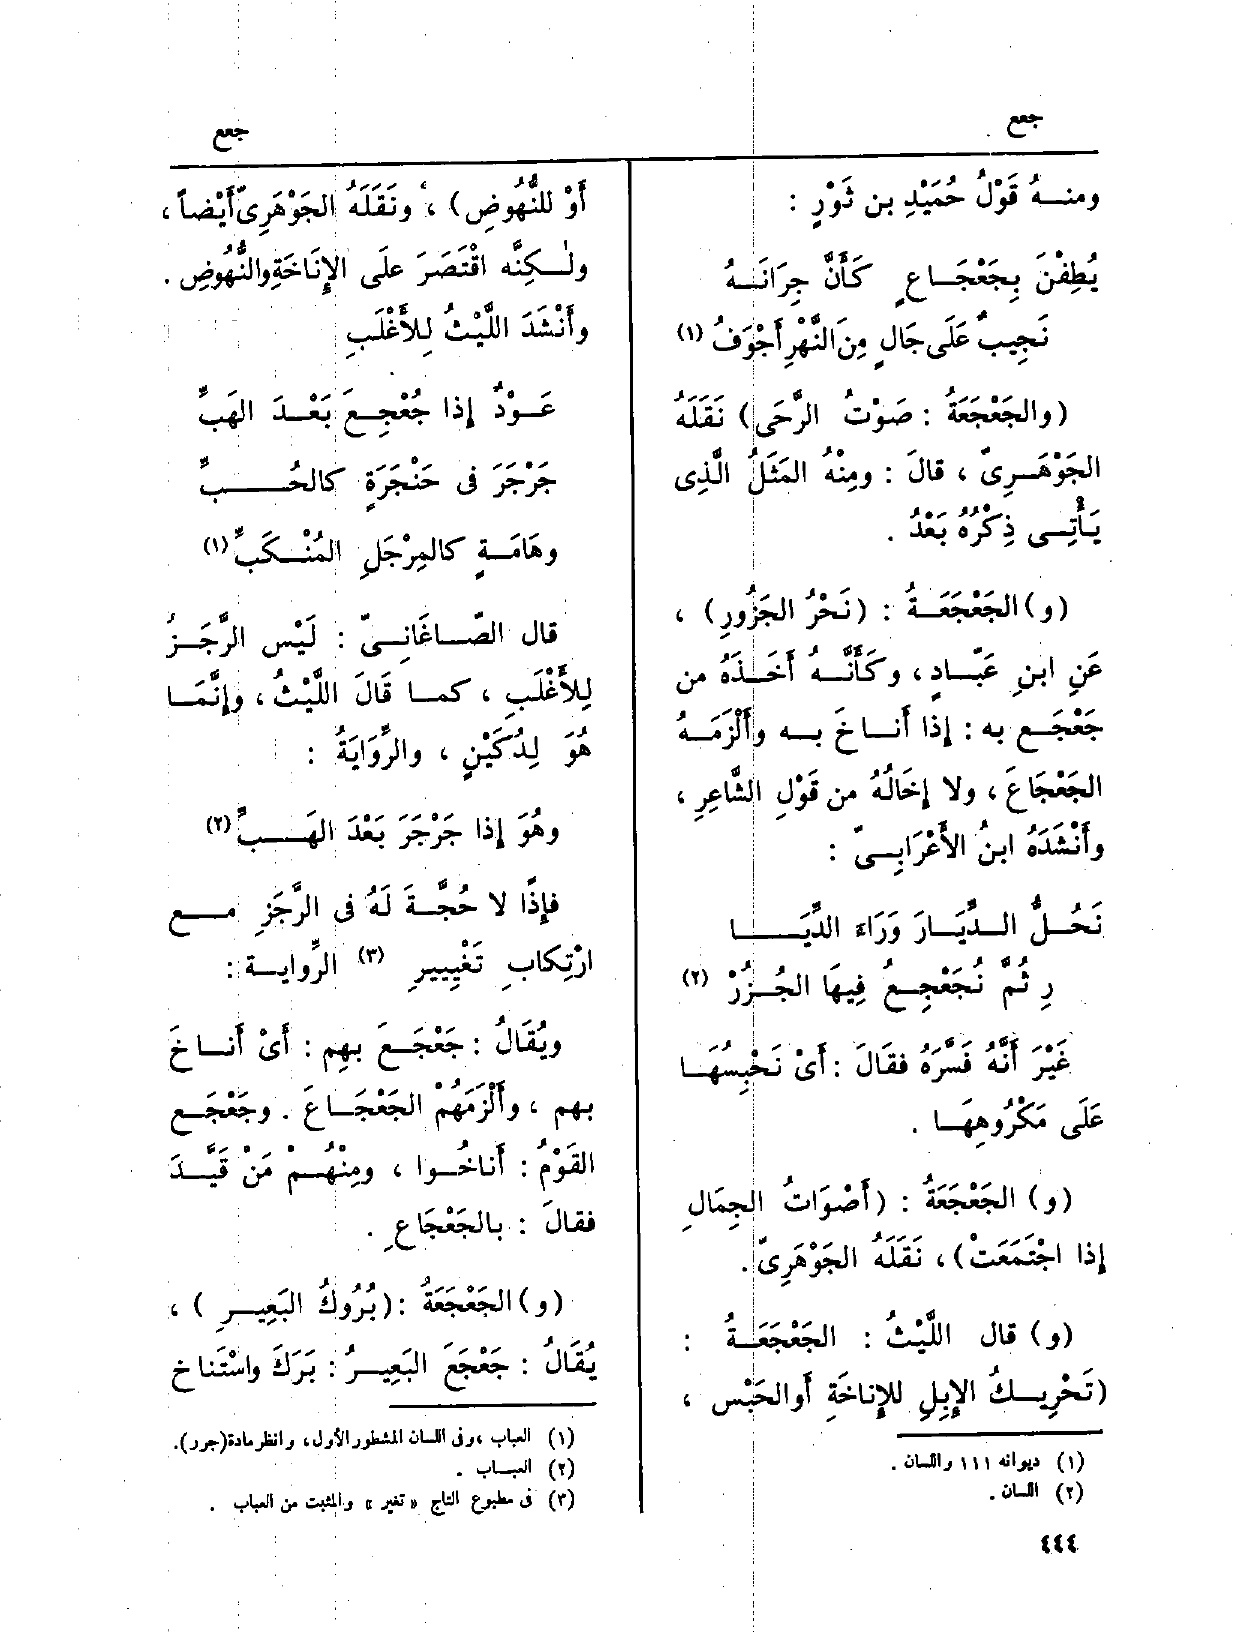 جعع
ومنـه قَوْلُ حُمَيْدِ بن ثَوْرٍ :
يُطِفْنَ بِجَعْجَـاعٍ كَأَنَّ جِرَانَـهُ
نَجِيبٌ عَلَى جَالٍ مِنَ النَّهْرِ أَجْوَفُ (١)
(والجَعْجَعَةُ : صَوْتُ الرَّحَى) نَقَلَهُ
الجَوْهَـرِىّ ، قالَ : ومِنْهُ المَثَلُ الَّذِى
يَأْتِـى ذِكْرُهُ بَعْدُ .
(و) الجَعْجَعَـةُ : (نَحْرُ الجَزُورِ) ،
عَنِ ابنِ عَبَّـادٍ ، وكَأَنَّـهُ أَخَـذَهُ من
جَعْجَـع به : إذا أَنـاخَ بـه وأَلْزَمَـهُ
الجَعْجَاعَ ، ولا إخَالُهُ من قَوْلِ الشَّاعِرِ ،
وأَنْشَدَهُ ابنُ الأَعْرَابِـىّ :
نَحُلُّ الـدِّيَـارَ وَرَاءَ الدِّيَـا
رِ ثُمَّ نُجَعْجِـعُ فِيهَا الجُـزُرْ (٢)
غَيْرَ أَنَّهُ فَسَّرَهُ فقَالَ : أَىْ نَحْبِسُهَـا
عَلَى مَكْرُوهِهَـا .
(و) الجَعْجَعَةُ : (أَصْوَاتُ الجِمَالِ
إذا اجْتَمَعَتْ) ، نَقَلَهُ الجَوْهَرِىّ .
(و) قال اللَّيْثُ : الجَعْجَعَـةُ :
(تَحْرِيـكُ الإِبِلِ للإِناخَةِ أَو الحَبْس ،
(١) ديوانه ١١١ واللسان .
(٢) اللسان .
٤٤٤
جعع
أَوْ للنُّهُوضِ) ، ونَقَلَهُ الجَوْهَرِىّ أَيْضاً ،
ولٰـكِنَّه اقْتَصَرَ علَى الإِنَاخَةِ والنُّهُوضِ .
وأَنْشَدَ اللَّيْثُ لِلأَغْلَبِ
عَـوْدٌ إذا جُعْجِـعَ بَعْـدَ الهَبِّ
جَرْجَرَ فى حَنْجَرَةٍ كالحُـبِّ
وهَامَـةٍ كالمِرْجَلِ المُنْـكَبِّ (١)
قال الصّـاغَانِـىّ : لَيْس الرَّجَـزُ
لِلأَغْلَبِ ، كمـا قَالَ اللَّيْثُ ، وإِنَّمَـا
هُوَ لِدُكَيْنٍ ، والرِّوَايَةُ :
وهُوَ إذا جَرْجَرَ بَعْدَ الهَـبِّ (٢)
فإذًا لا حُجَّـةَ لَهُ فى الرَّجَزِ مـع
ارْتِكابِ تَغْيِيرِ (٣) الرِّوايـة :
ويُقَالُ : جَعْجَـعَ بهِم : أَىْ أَنـاخَ
بهم ، وأَلْزَمَهُمْ الجَعْجَـاعَ . وجَعْجَـع
القَوْمُ : أَناخُـوا ، ومِنْهُـمْ مَنْ قَيَّـدَ
فقالَ : بالجَعْجَاعِ .
(و) الجَعْجَعَةُ : (بُرُوكُ البَعِيـرِ ) ،
يُقَالُ : جَعْجَعَ البَعِيـرُ : بَرَكَ واسْتَناخ
(١) العباب ، وفى اللسان المشطور الأول ، وانظر مادة (جرر) .
(٢) العبـاب .
(٣) فى مطبوع التاج « تغير » والمثبت من العباب .